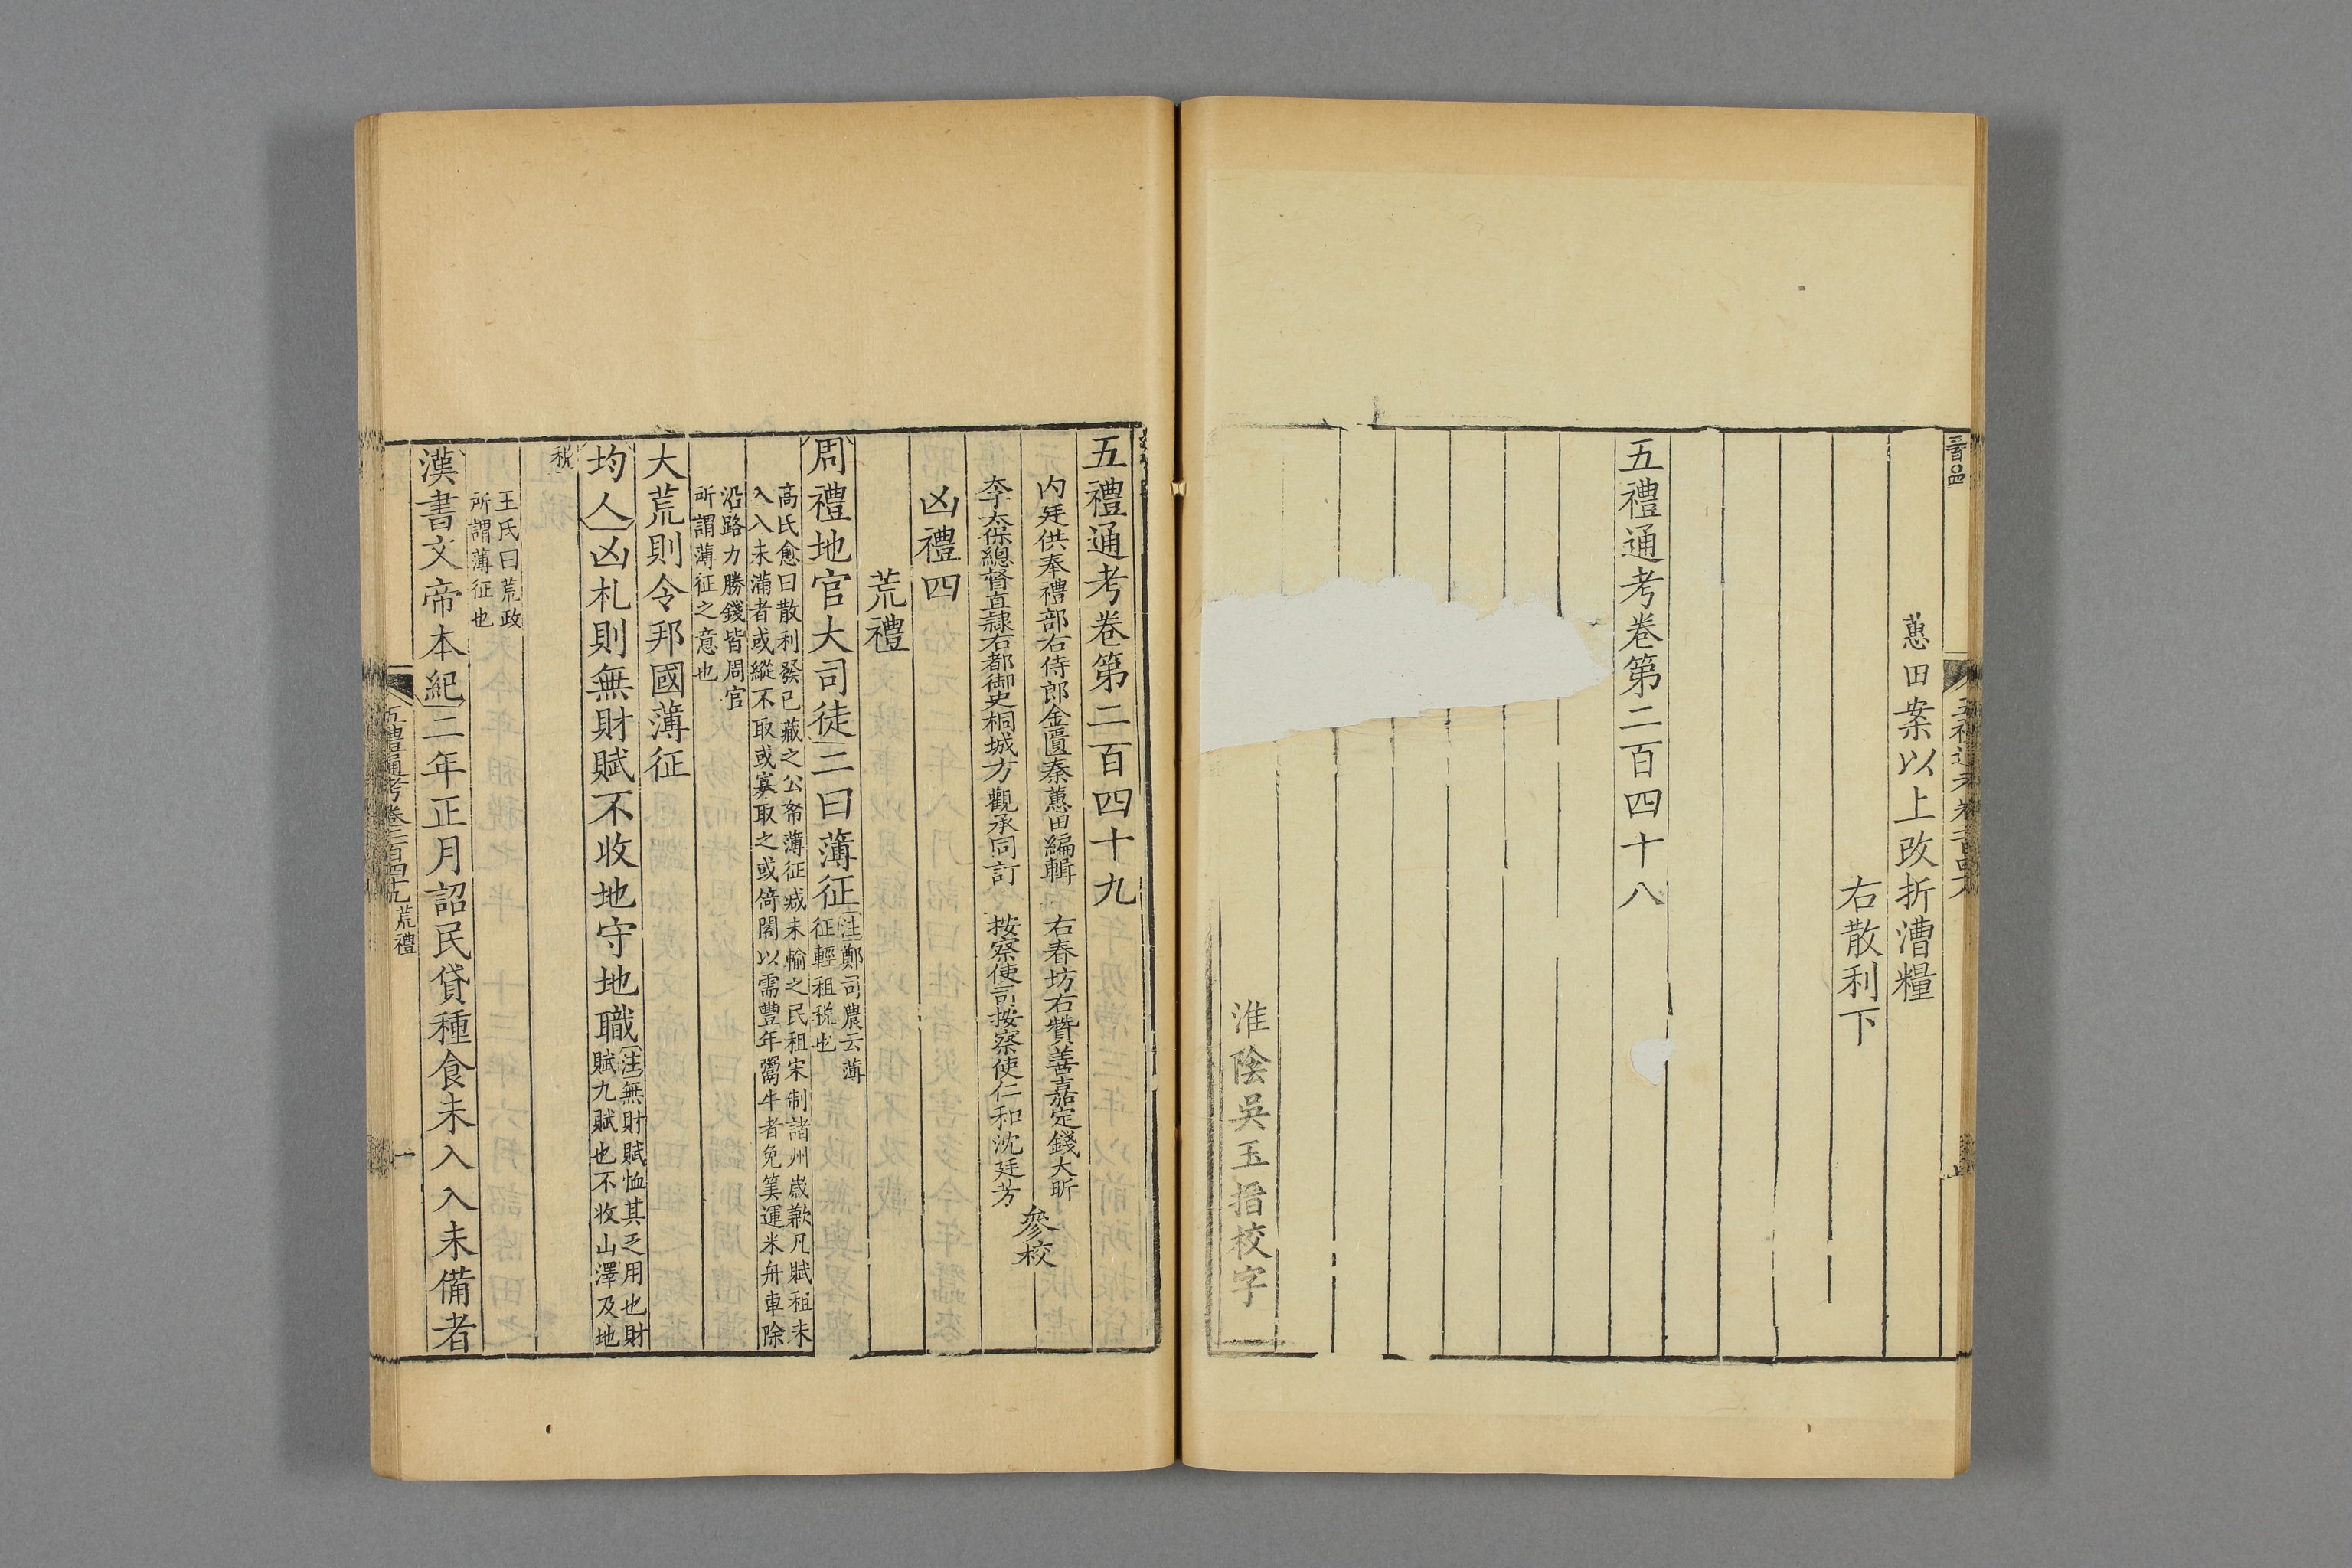 蕙田案以上改折漕糧
右散利下
五禮通考卷第二百四十八
淮陰吳玉搢校字
五禮通考卷第二百四十九
内廷供奉禮部右侍郎金匱秦蕙田編輯 右春坊右贊善嘉定錢大昕
太子太保總督直隸右都御史桐城方觀承同訂 按察使司按察使仁和沈廷芳
參校
凶禮四
荒禮
周禮地官大司徒二曰薄征注鄭司農云薄
征輕租稅也
高氏愈曰散利發已藏之公帑薄征減未輸之民租宋制諸州歳歉凡賦租未
入入未滿者或縱不取或寡取之或倚閣以需豐年鬻牛者免筭運米舟車除
沿路力勝錢皆周官
所謂薄征之意也
大荒則令邦國薄征
均人凶札則無財賦不收地守地職注無財賦恤其乏用也財
賦九賦也不收山澤及地
稅
王氏曰荒政
所謂薄征也
漢書文帝本紀二年正月詔民貸種食未入入未備者
五禮通考卷二百四十九 荒禮
一